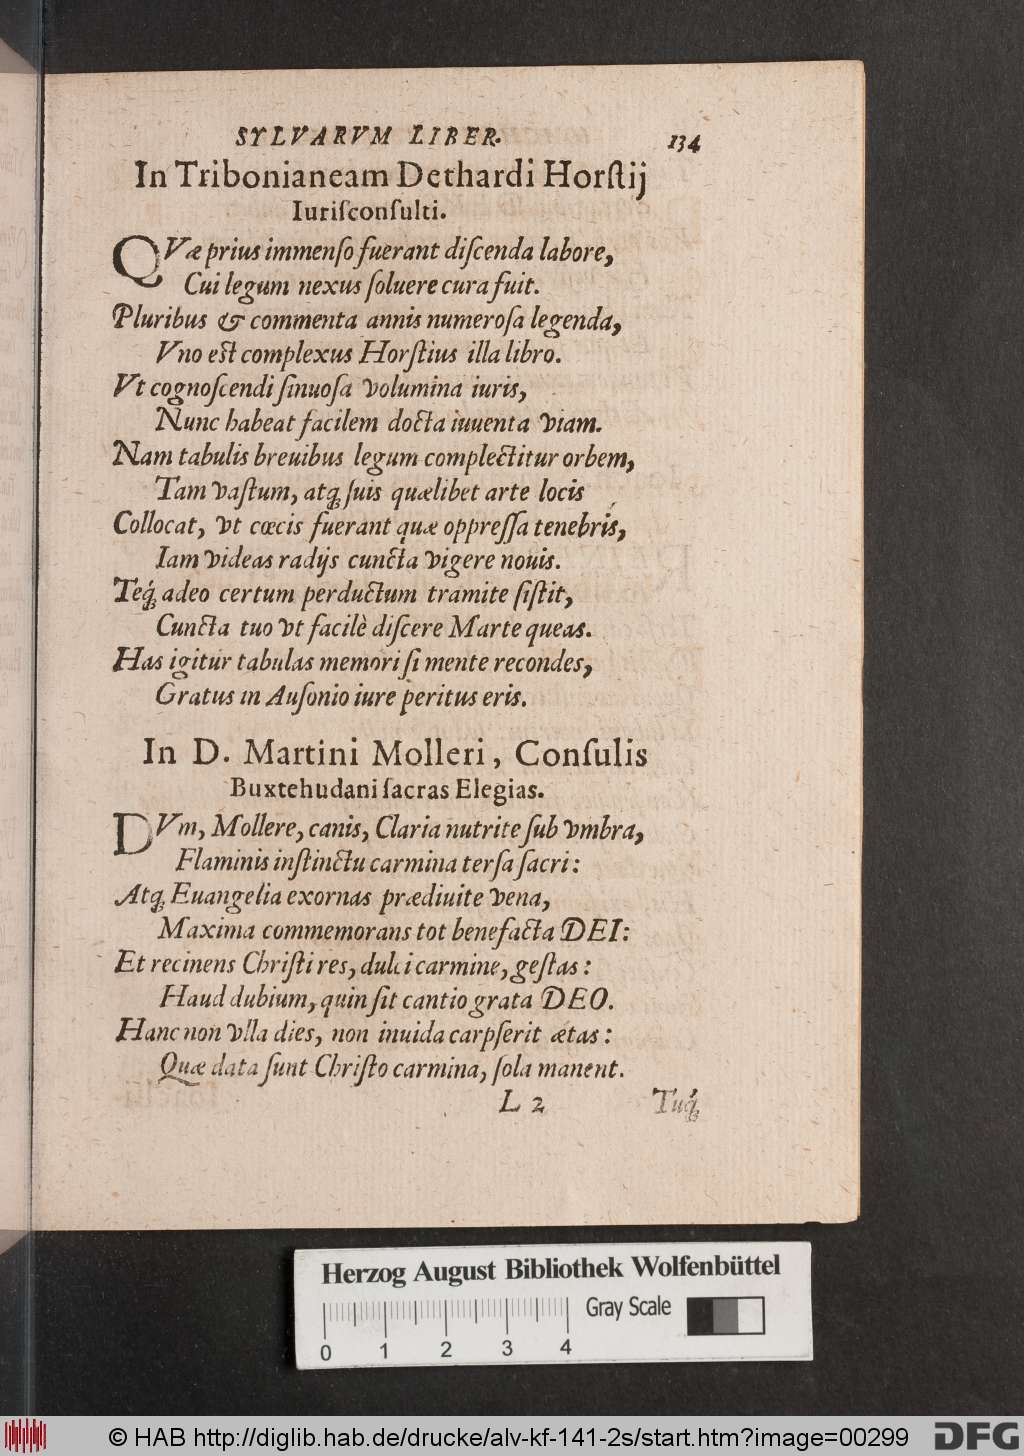 SYLVARVM LIBER. 134
In Tribonianeam Dethardi Horſtij
Iuriſconſulti.
QVæ prius immenſo fuerant diſcenda labore,
Cui legum nexus ſoluere cura fuit.
Pluribus & commenta annis numeroſa legenda,
Vno eſt complexus Horſtius illa libro.
Vt cognoſcendi ſinuoſa volumina iuris,
Nunc habeat facilem docta iuuenta viam.
Nam tabulis breuibus legum complectitur orbem,
Tam vaſtum, atq; ſuis quælibet arte locis
Collocat, vt cœcis fuerant quæ oppreſſa tenebris,
Iam videas radijs cuncta vigere nouis.
Teq́; adeo certum perductum tramite ſiſtit,
Cuncta tuo vt facilè diſcere Marte queas.
Has igitur tabulas memori ſi mente recondes,
Gratus in Auſonio iure peritus eris.
In D. Martini Molleri, Conſulis
Buxtehudani ſacras Elegias.
DVm, Mollere, canis, Claria nutrite ſub vmbra,
Flaminis inſtinctu carmina terſa ſacri:
Atq; Euangelia exornas prædiuite vena,
Maxima commemorans tot benefacta DEI:
Et recinens Chriſti res, dulci carmine, geſtas:
Haud dubium, quin ſit cantio grata DEO.
Hanc non vlla dies, non inuida carpſerit ætas:
Quæ data ſunt Chriſto carmina, ſola manent.
L 2 Tuq́;
Herzog August Bibliothek Wolfenbüttel
Gray Scale
0 1 2 3 4
© HAB http://diglib.hab.de/drucke/alv-kf-141-2s/start.htm?image=00299
DFG